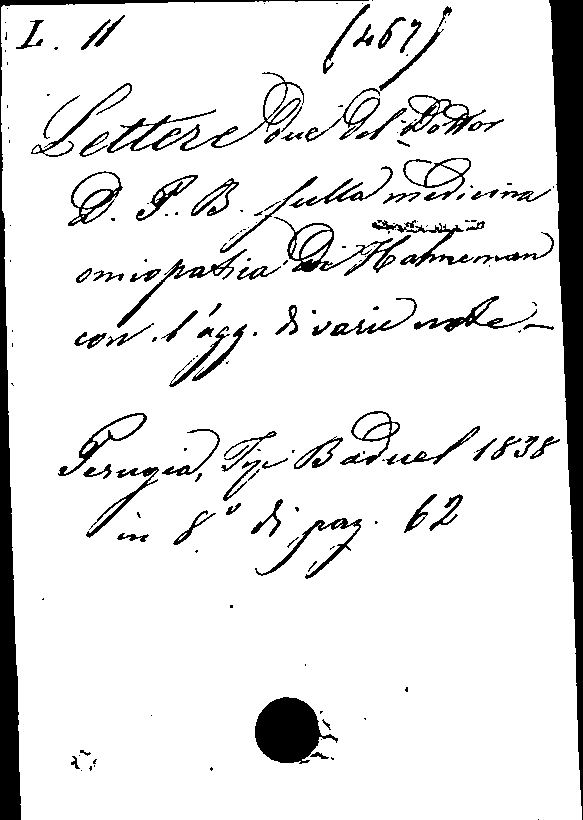 L. 11 (467)
Lettere due del Dottor
D. P. B. sulla medicina
omiopatica di Hahneman
con l'agg. di varie note -
Perugia, Tip. Baduel 1838
in 8° di pag. 62